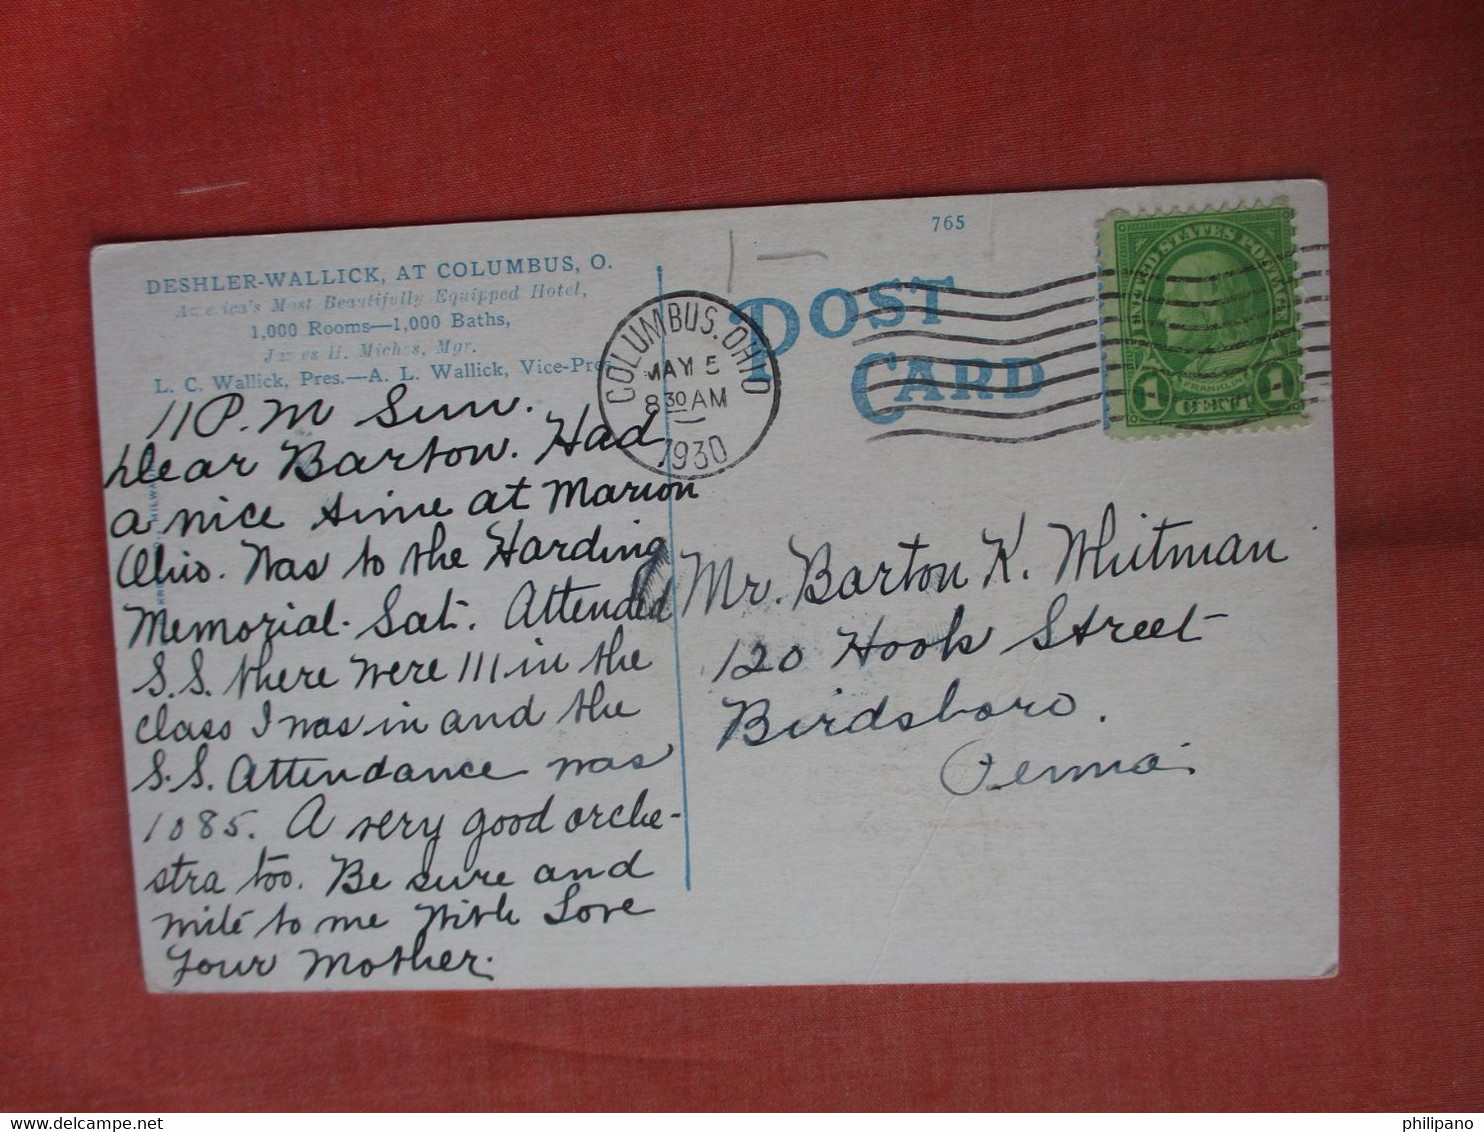 765
DESHLER-WALLICK, AT COLUMBUS, O.
America's Most Beautifully Equipped Hotel,
1,000 Rooms—1,000 Baths,
James H. Michos, Mgr.
L. C. Wallick, Pres.—A. L. Wallick, Vice-Pres.
COLUMBUS, OHIO
MAY 5
8 30 AM
1930
POST
CARD
UNITED STATES POSTAGE
FRANKLIN
1 CENT 1
11 P.M Sun.
Dear Barton. Had
a nice time at Marion
Ohio. Was to the Harding
Memorial. Sat. Attended
S.S. there were 111 in the
class I was in and the
S.S. Attendance was
1085. A very good orche-
stra too. Be sure and
write to me With Love
Your Mother.
Mr. Barton K. Whitman
120 Hook Street
Birdsboro.
Penna.
philipano
delcampe.net